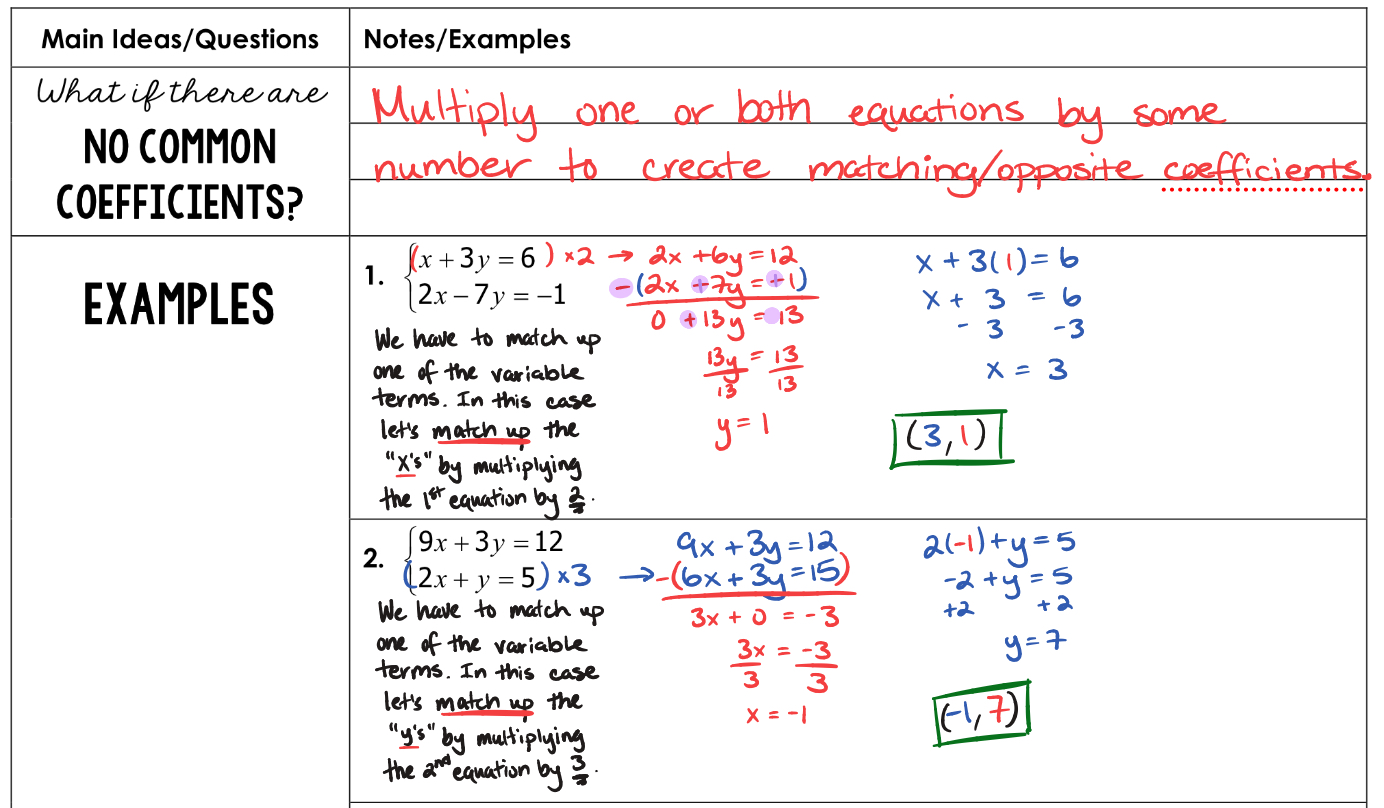 Main Ideas/Questions
Notes/Examples
What if there are
NO COMMON
COEFFICIENTS?
Multiply one or both equations by some
number to create matching/opposite coefficients.
EXAMPLES
1. {(x + 3y = 6) ×2 → 2x + 6y = 12
{2x − 7y = −1 −(2x + 7y = +1)
0 + 13y = 13
13y/13 = 13/13
y = 1
x + 3(1) = 6
x + 3 = 6
- 3 -3
x = 3
(3, 1)
We have to match up
one of the variable
terms. In this case
let's match up the
"x's" by multiplying
the 1st equation by 2.
2. {9x + 3y = 12 9x + 3y = 12
{(2x + y = 5) ×3 → -(6x + 3y = 15)
3x + 0 = -3
3x/3 = -3/3
x = -1
2(-1) + y = 5
-2 + y = 5
+2 +2
y = 7
(-1, 7)
We have to match up
one of the variable
terms. In this case
let's match up the
"y's" by multiplying
the 2nd equation by 3.